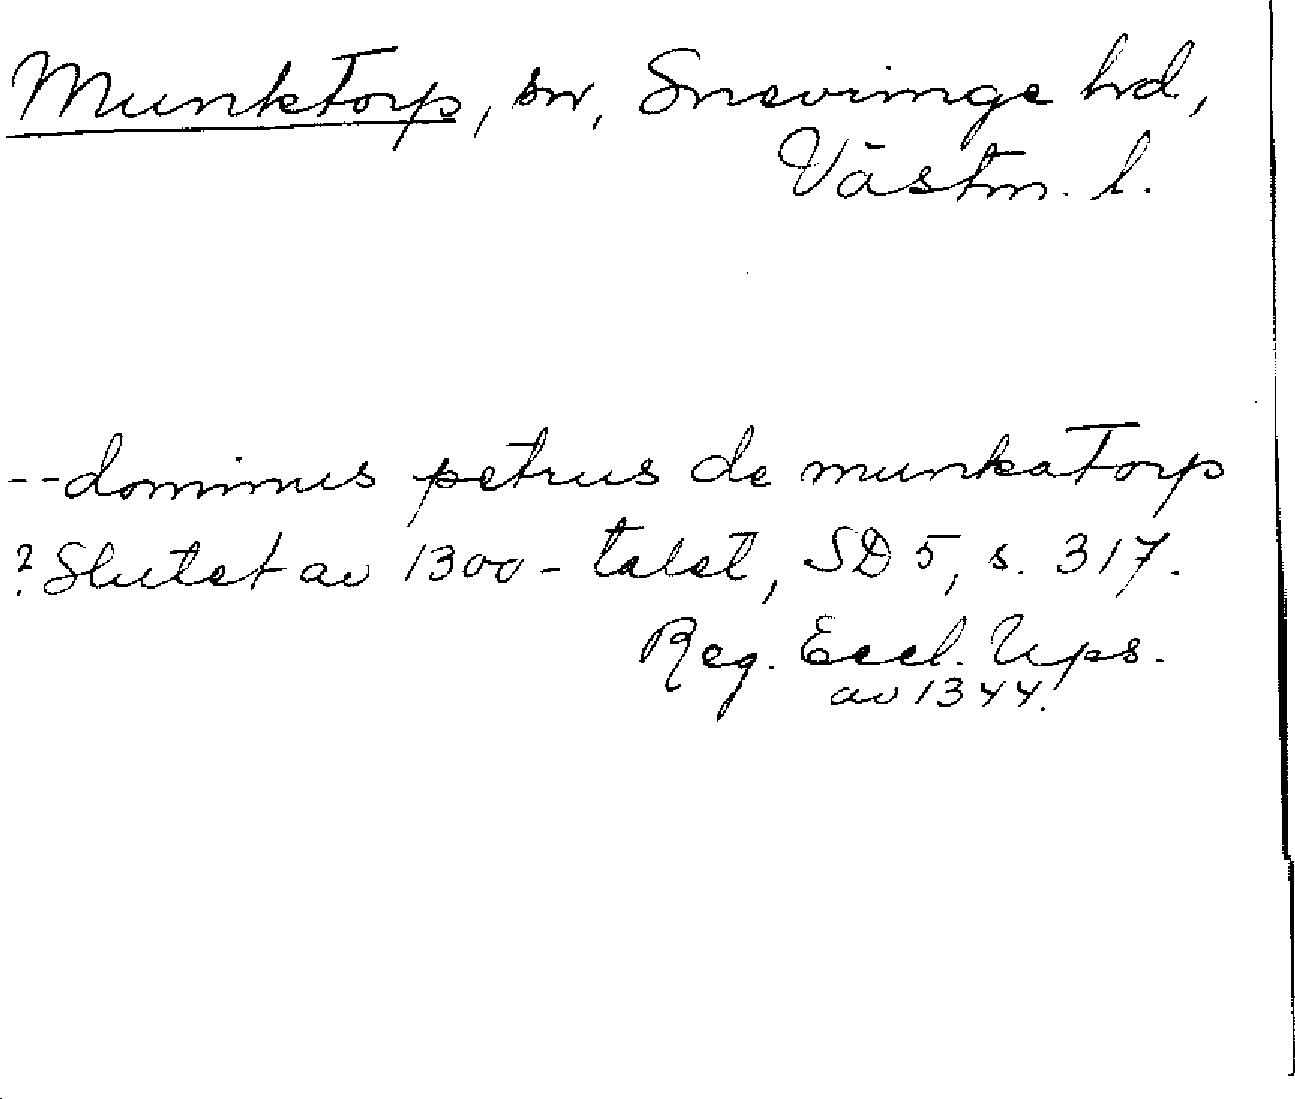 Munktorp, sn, Snevringe hd,
Västm. l.
--dominus petrus de munkatorp
? Slutet av 1300-talet, SD 5, s. 317.
Reg. Eccl. Ups.
av 1344.